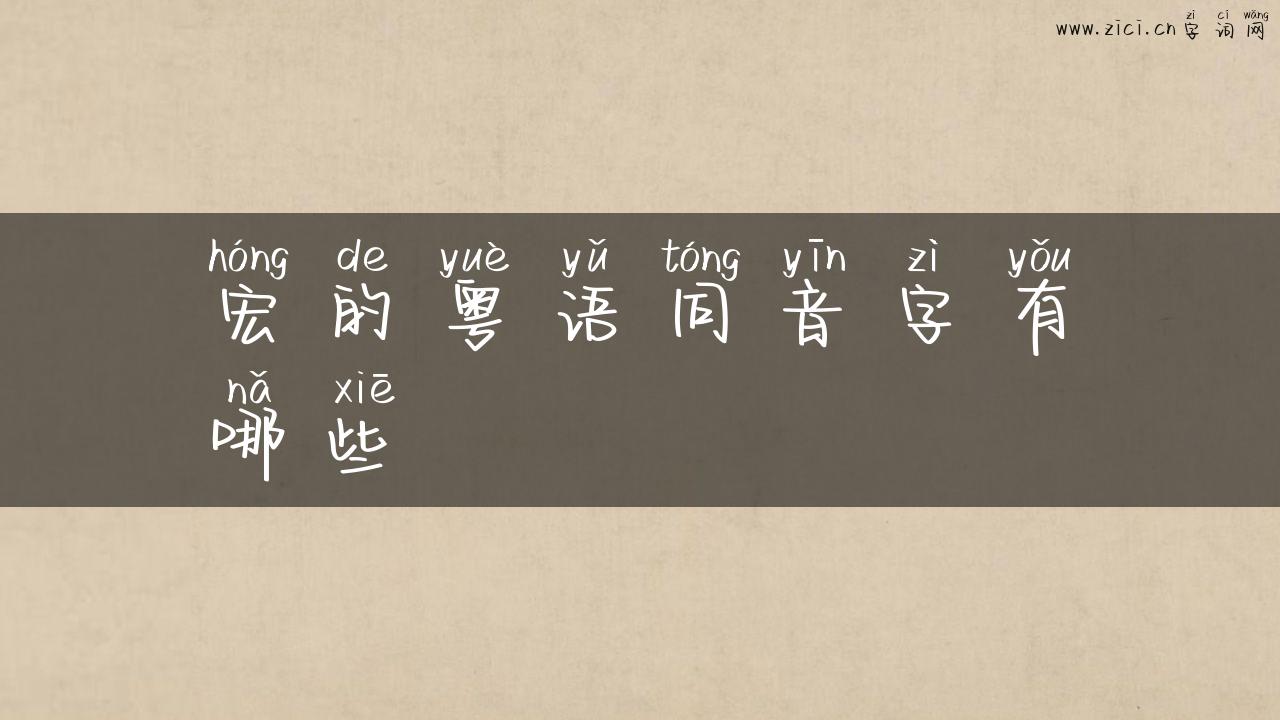 zì cí wǎng
www.zici.cn 字 词 网
hóng de yuè yǔ tóng yīn zì yǒu
宏 的 粤 语 同 音 字 有
nǎ xiē
哪 些